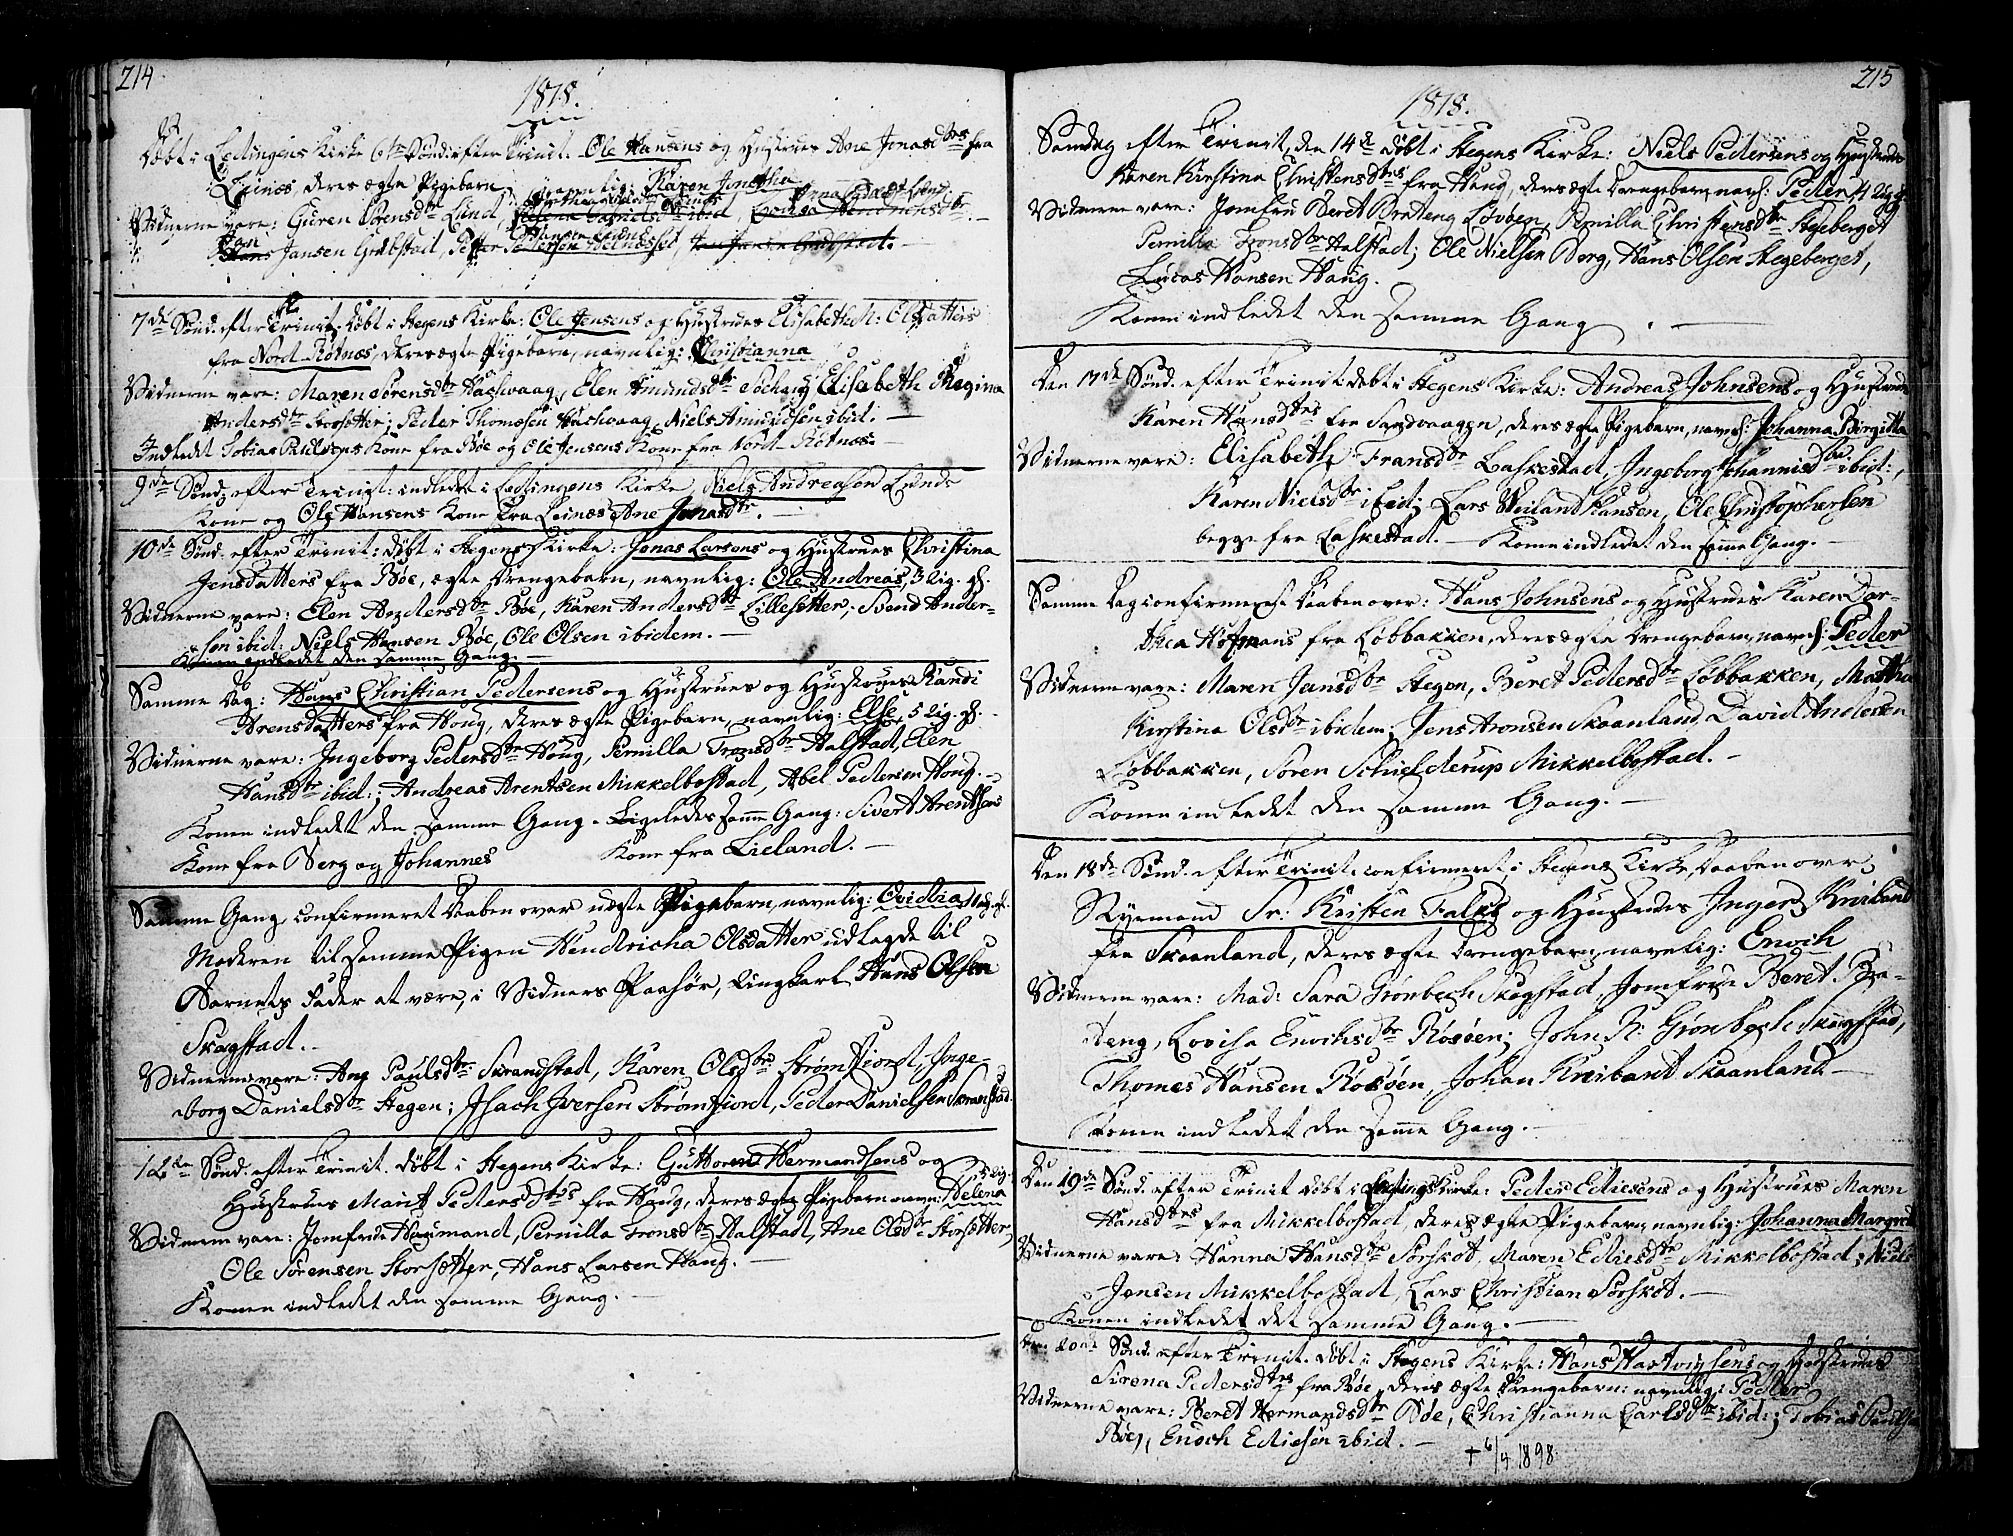 214
1818.
Døbt i Lødingens Kirke 6te Sönd: efter Trinit. Ole Hansens og Hustrues Ane Jonasdtrs fra
Leines, deres ægte Pigebarn, navnlig: Karen Jonetha
Vidnerne vare: Guren Sørensdtr Lund, ibid,
Jansen Grøbstad, Petter Pedersen
7de Sönd. efter Trinit: døbt i Stegens Kirke: Ole Jensens og Hustrues Elisabetha: Olsdatters
fra Nord Røtnæs, deres ægte Pigebarn, navnlig: Christianna
Vidnerne vare: Maren Sørensdtr Haschvaag, Elen Amundsdtr Elisabeth Regina
Andersdtr Storsetter; Peder Thomæsen Haschvaag, Niels Amundsen ibid. —
Indledet Tobias Paulsens Kone fra Bøe og Ole Jensens Kone fra Nord Røtnæs.
9de Sönd: efter Trinit: indledet i Lødingens Kirke Niels Andreasen Lunds
Kone og Ole Hansens Kone fra Leines Ane Jonasdtr. —
10de Sönd. efter Trinit: døbt i Stegens Kirke: Jonas Larsens og Hustrues Christina
Jensdatters fra Bøe, ægte Drengebarn, navnlig: Ole Andreas, 3 Uig. gl.
Vidnerne vare: Elen Andersdtr Bøe, Karen Andersdtr Lillesetter, Svend Ander-
sen ibid: Niels Hansen Bøe, Ole Olsen ibidem. —
Konen indledet den samme Gang. —
Samme Dag: Hans Christian Pedersens og Hustrues og Hustrues Randi
Arensdatters fra Houg, deres ægte Pigebarn, navnlig: Else, 5 Uig. gl. —
Vidnerne vare: Ingeborg Pedersdtr Houg, Pernilla Tronsdtr Halstad, Elen
Hansdtr ibid:; Andreas Arentsen Mikkelbostad, Abel Pedersen Houg. —
Konen indledet den samme Gang. Ligeledes samme Gang: Sivert Arentsens
Kone fra Berg og Johannes Kone fra Lieland. —
Samme Gang confirmeret Daaben over uægte Pigebarn, navnlig: Ovidia,
Moderen til samme Pigen Hendricha Olsdatter udlagde til
Barnets Fader at være, i Vidners Paahør, Ungkarl Hans Olsen
Skogstad.
Vidnerne vare: Ane Paulsdtr Skrandstad, Karen Olsdtr Strømfiord, Inge-
borg Danielsdtr Stegen; Isach Iversen Strømfiord, Peder Danielsen Skranstad.
12te Sönd. efter Trinit. døbt i Stegens Kirke: Guttorm Hermandsens og
Hustrues Marit Pedersdtrs fra Houg, deres ægte Pigebarn navn: Helena 5 Uig.
Vidnerne vare: Jomfrue Hagmand, Pernilla Tronsdtr Halstad, Ane Olsdtr Storsetter,
Ole Sørensen Storsetter, Hans Larsen Houg. —
Konen indledet den samme Gang. —
215
1818.
Sondag efter Trinit, den 14de døbt i Stegens Kirke: Niels Pedersens og Hustrues
Karen Kirstina Christensdtrs fra Houg, deres ægte Drengebarn, navnl: Peder
Vidnerne vare: Jomfru Beret Brateng Løvøen, Pernilla Christensdtr Stegeberget
Pernilla Tronsdtr Halstad; Ole Nielsen Berg, Hans Olsen Stegeberget,
Lucas Hansen Houg.
Konen indledet den samme Gang. —
Den 17de Sönd. efter Trinit. døbt i Stegens Kirke: Andreas Johnsens og Hustrues
Karen Hansdtrs fra Sandvaagen, deres ægte Pigebarn, navnl: Johanna Birgitta
Vidnerne vare: Elisabeth Fransdtr Laskestad, Ingeborg Johannisdtr ibid:,
Karen Nielsdtr ibid; Lars Weiland Hansen, Ole Christophersen
begge fra Laskestad. — Konen indledet den samme Gang. —
Samme Dag confirmeret Daaben over: Hans Johnsens og Hustrues Karen Dor-
thea Hofmans fra Løbbakken, deres ægte Drengebarn, navnl: Peder
Vidnerne vare: Maren Jensdtr Stegen, Beret Pedersdtr Løbbakken, Martha
Kirstina Olsdtr ibidem; Jens Aronsen Skaanland, David Andersen
Løbbakken, Søren Schielderup Mikkelbostad. —
Konen indledet den samme Gang. —
Den 18de Sönd. efter Trinit. confirmeret i Stegens Kirke Daaben over
Ryemand Sr: Kristen Falch og Hustrues Inger Kreibant
fra Skaanland, deres ægte Drengebarn, navnlig: Enoch
Vidnerne vare: Mad: Sara Grønbech Skogstad, Jomfrue Beret Bra-
teng, Lovisa Enochsdtr Røsøen; John R: Grønbech Skogstad,
Thomes Hansen Røsøen, Johan Kreibant Skaanland —
Konen indledet den samme Gang. —
Den 19de Sönd. efter Trinit døbt i Lødings Kirke: Peder Ediesens og Hustrues Maren
Hansdtrs fra Mikkelbostad, deres ægte Pigebarn, navnlig: Johanna Margreta
Vidnerne vare: Hanna Hansdtr Sørskot, Maren Ediesdtr Mikkelbostad; Niels
Jensen Mikkelbostad, Lars Christian Sørskot. —
Konen indledet det samme Gang. —
20de Sönd. efter Trinit. døbt i Stegens Kirke: Hans Hartvigsens og Hustrues
Sirena Pedersdtrs fra Bøe, deres ægte Drengebarn: navnlig: Peder
Vidnerne vare: Beret Hermandsdtr Bøe, Christianna Carlsdtr ibid:; Tobias Paulsen
Bøe, Enoch Ediesen ibid. —
† 6/4 1898